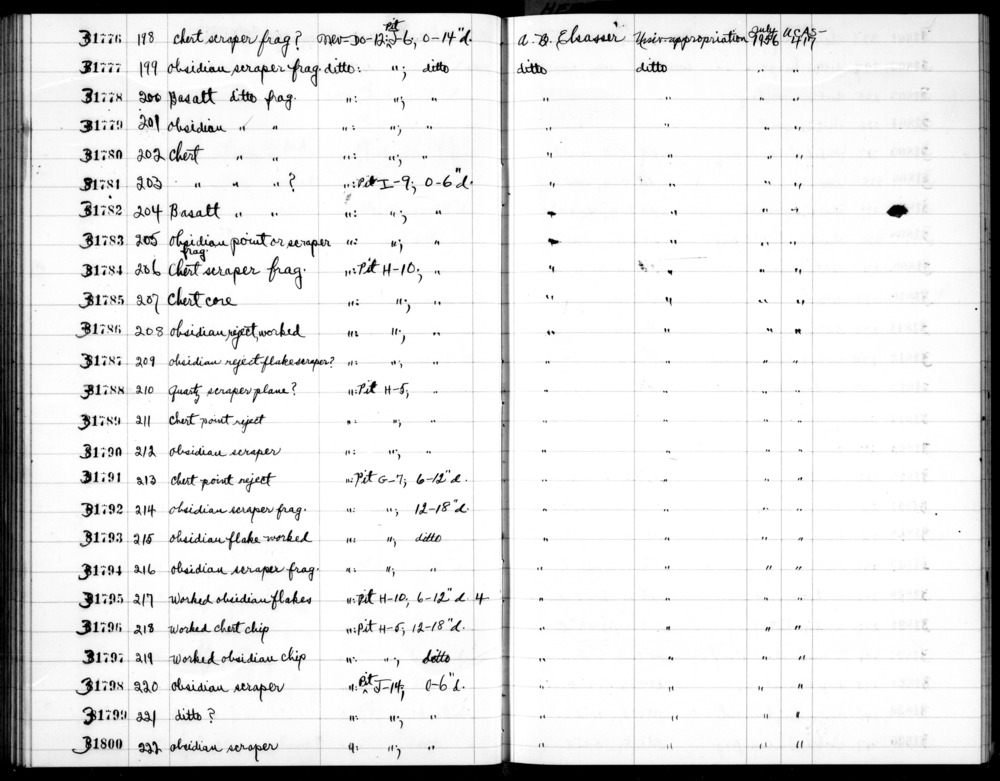 31776 198 chert scraper frag? Nev-Do-12: pit J-6; 0-14"d. A. B. Elsasser Univ. appropriation July 1956 UCAS-417
31777 199 obsidian scraper frag. ditto: "; ditto ditto ditto " "
31778 200 Basalt ditto frag. ": "; " " " " "
31779 201 obsidian " " ": "; " " " " "
31780 202 chert " " ": "; " " " " "
31781 203 " " " ? ": Pit I-9; 0-6"d. " " " "
31782 204 Basalt " " ": "; " " " " "
31783 205 obsidian point or scraper frag. ": "; " " " " "
31784 206 Chert scraper frag. ": Pit H-10; " " " " "
31785 207 Chert core ": "; " " " " "
31786 208 obsidian reject, worked ": "; " " " " "
31787 209 obsidian reject flake scraper? ": "; " " " " "
31788 210 quartz scraper plane? ": Pit H-5; " " " " "
31789 211 chert point reject ": "; " " " " "
31790 212 obsidian scraper ": "; " " " " "
31791 213 chert point reject ": Pit G-7; 6-12"d. " " " "
31792 214 obsidian scraper frag. ": "; 12-18"d. " " " "
31793 215 obsidian flake worked ": "; ditto " " " "
31794 216 obsidian scraper frag. ": "; " " " " "
31795 217 Worked obsidian flakes ": Pit H-10; 6-12"d. 4 " " " "
31796 218 worked chert chip ": Pit H-5; 12-18"d. " " " "
31797 219 worked obsidian chip ": "; ditto " " " "
31798 220 obsidian scraper ": pit J-14; 0-6"d. " " " "
31799 221 ditto? ": "; " " " " "
31800 222 obsidian scraper ": "; " " " " "